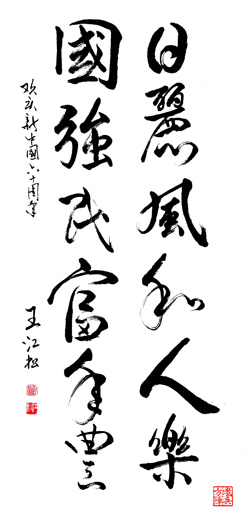 日麗風和人樂
國強民富年豐
欢庆新中國六十周年
王江松